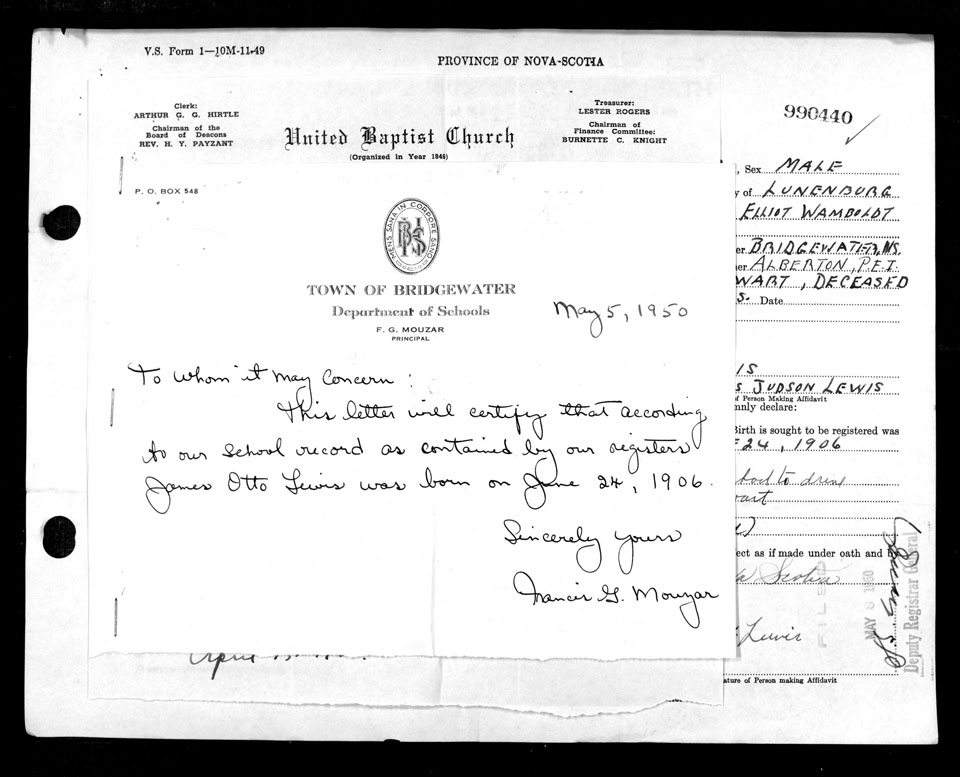 V.S. Form 1—10M-11-49
PROVINCE OF NOVA-SCOTIA
990440
Clerk:
ARTHUR G. G. HIRTLE
Chairman of the
Board of Deacons
REV. H. Y. PAYZANT
United Baptist Church
(Organized in Year 1846)
Treasurer:
LESTER ROGERS
Chairman of
Finance Committee:
BURNETTE C. KNIGHT
P. O. BOX 548
MENS SANA IN CORPORE SANO
TOWN OF BRIDGEWATER
Department of Schools
F. G. MOUZAR
PRINCIPAL
May 5, 1950
To Whom it May Concern:
This letter will certify that according
to our school record as contained by our registers
James Otto Lewis was born on June 24, 1906.
Sincerely yours
Francis G. Mouzar
, Sex MALE
y of LUNENBURG
ELLIOT WAMBOLDT
er BRIDGEWATER, NS.
her ALBERTON, P.E.I.
WART, DECEASED
S. Date
IS
S JUDSON LEWIS
of Person Making Affidavit
mnly declare:
Birth is sought to be registered was
E 24, 1906
ect as if made under oath and b
a Scotia
Lewis
ature of Person making Affidavit
FILED
MAY 8 1950
Deputy Registrar General
April